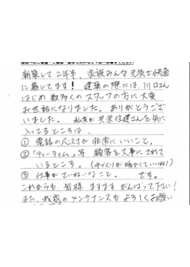 新築して2年半、家族みんな元気に快適
に暮してます! 建築の際には、川口さん
はじめ数多くのスタッフの方に大変
お世話になりました。ありがとうござ
いました。私が
入ってるところは、
① 電話の応対が非常にいいこと。
② 「ティータイム」等 顧客を大事にされて
いるところ。(手づくりが暖かくていいね!)
③ 仕事がていねいなこと。 です。
これからも、皆様、ますますがんばって下さい!
また、我家のメンテナンスもよろしくお願い